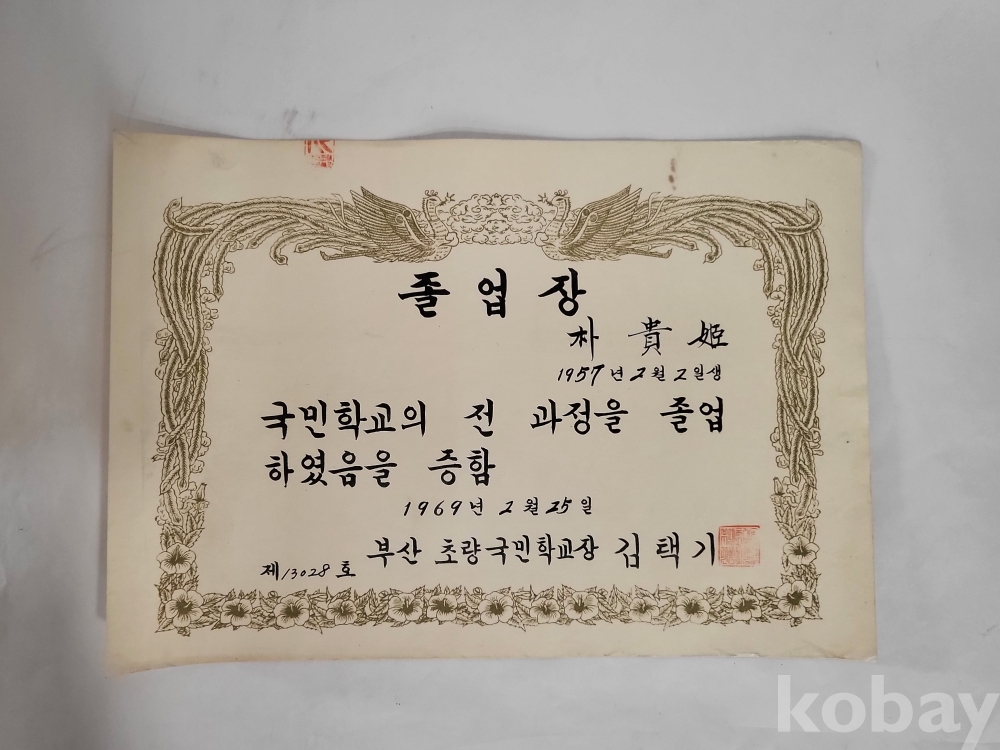 졸업장
朴貴姬
1957년 2월 2일생
국민학교의 전 과정을 졸업
하였음을 증함
1969년 2월 25일
부산 초량국민학교장 김택기
제13028호
kobay